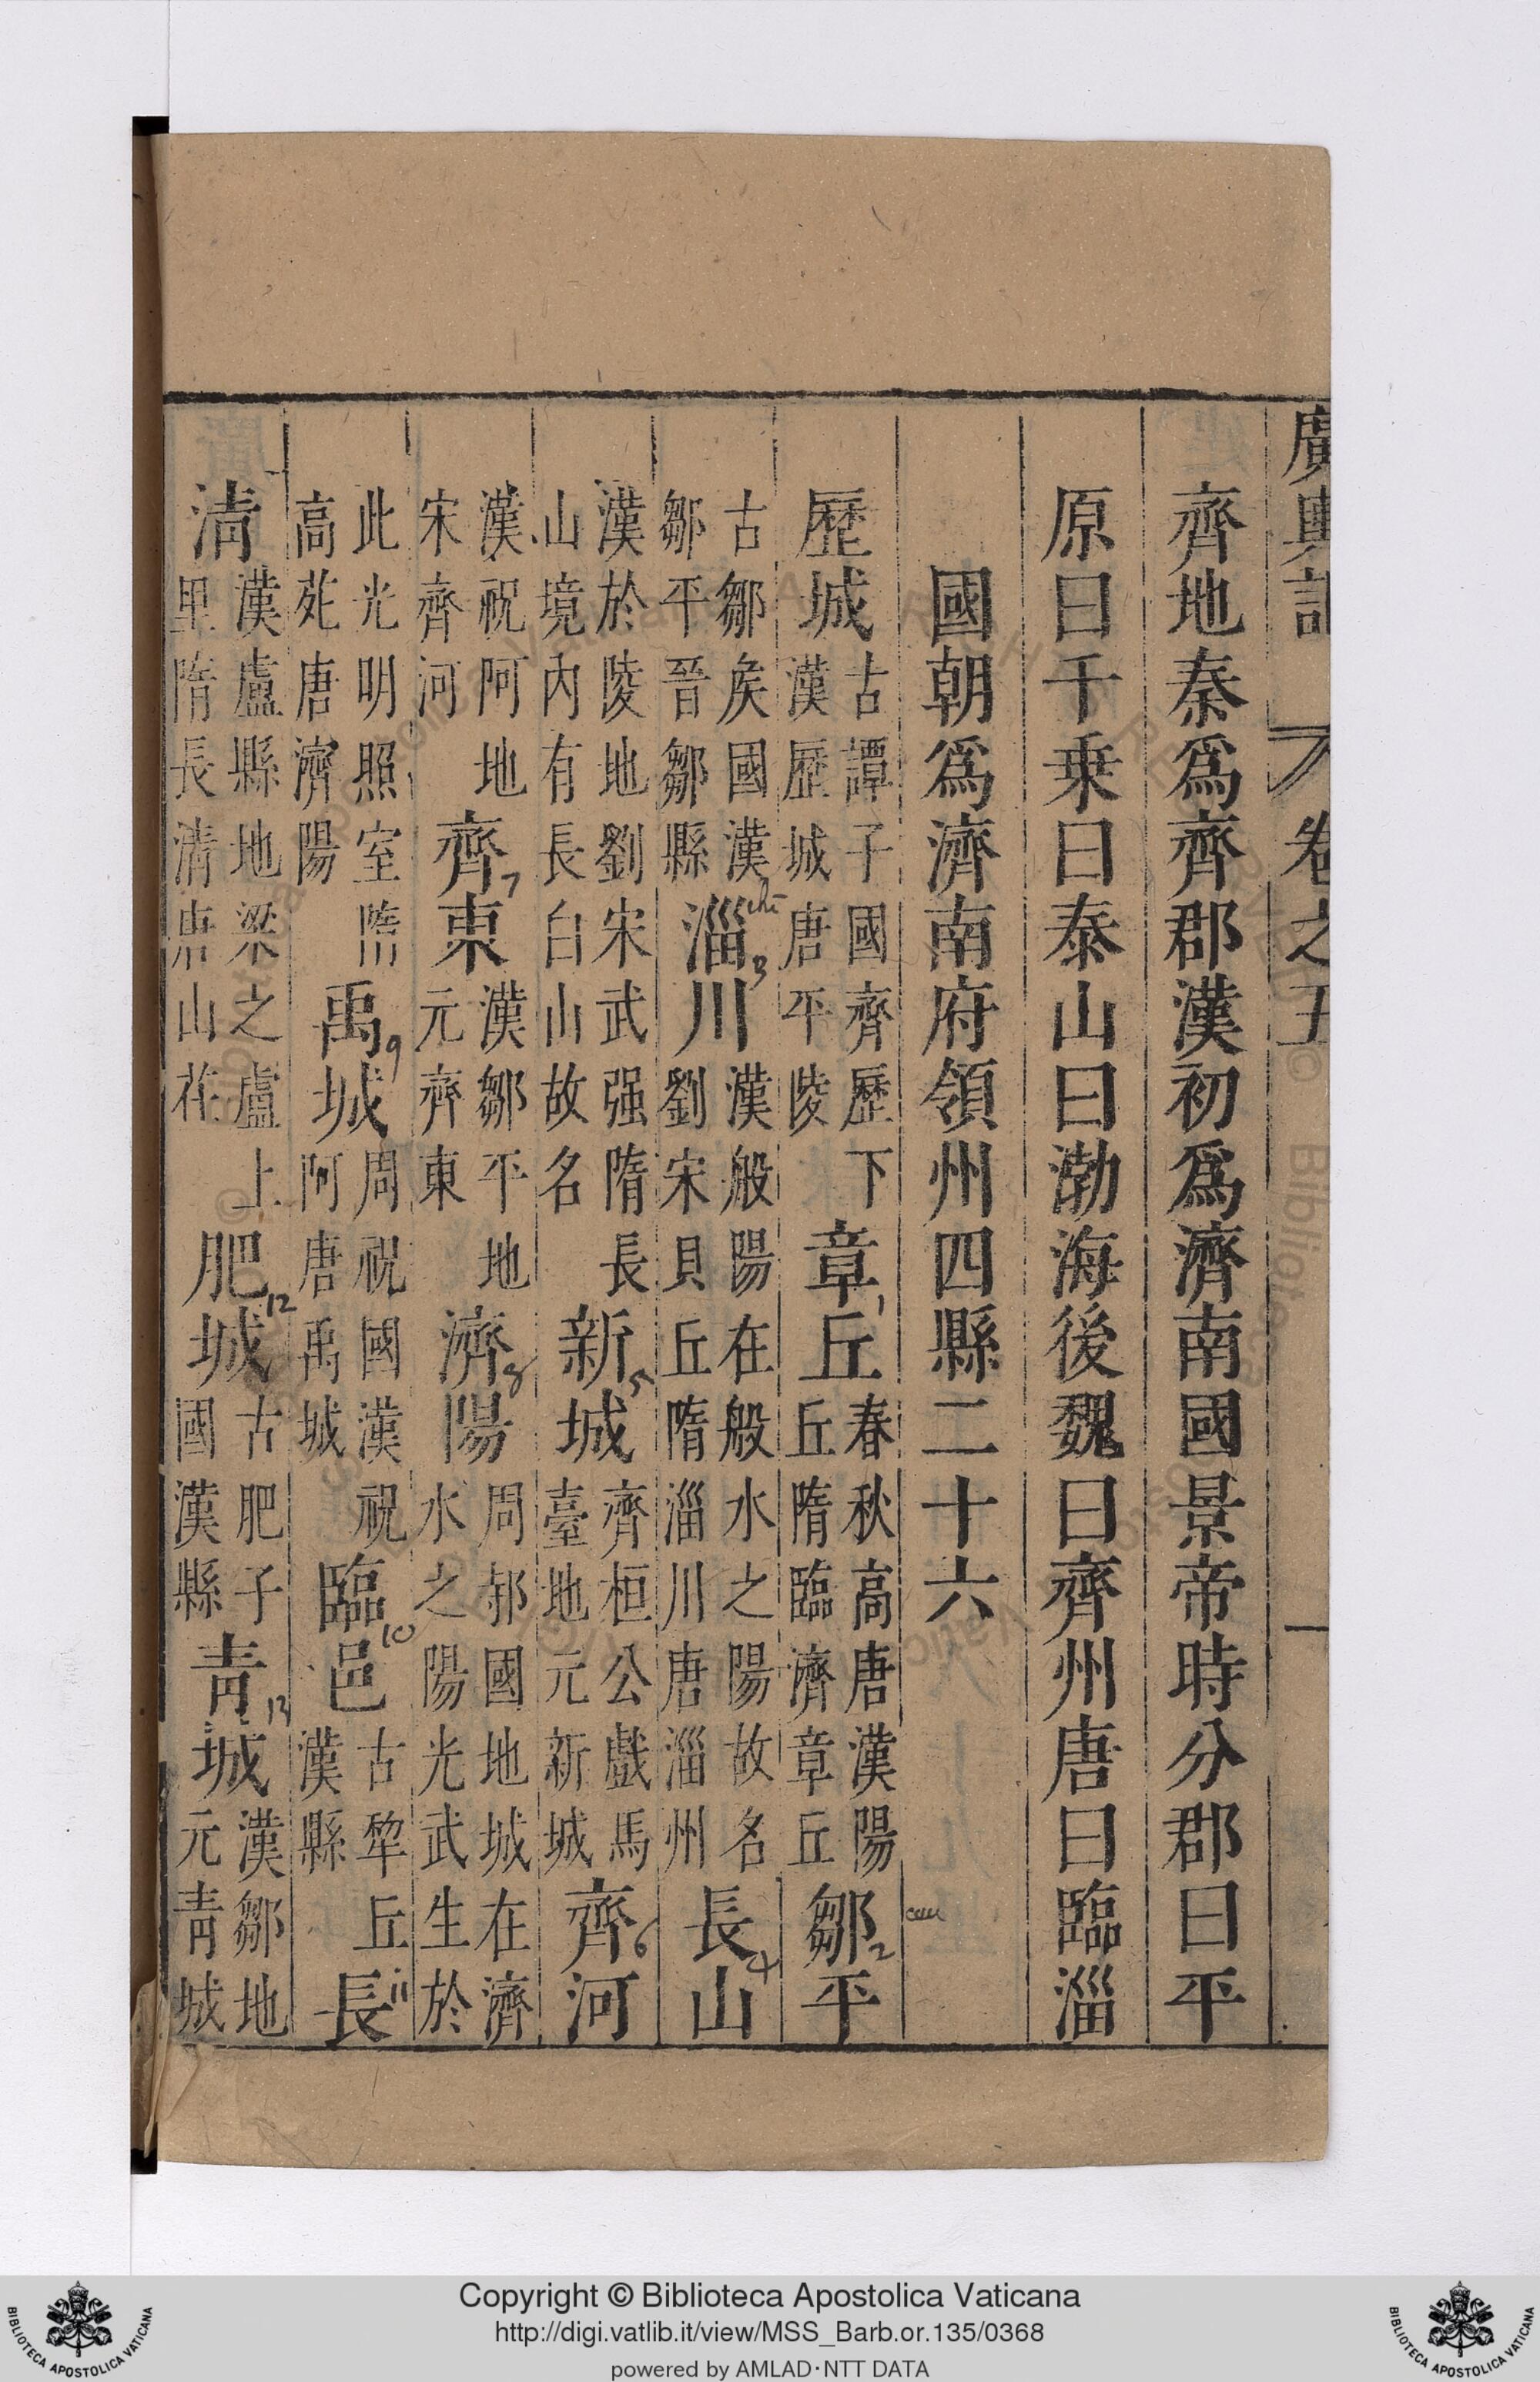 廣輿記 卷之五 一
齊地秦爲齊郡漢初爲濟南國景帝時分郡曰平
原曰千乗曰泰山曰渤海後魏曰齊州唐曰臨淄
國朝爲濟南府領州四縣二十六
歷城古譚子國齊歷下漢歷城唐平陵章丘春秋高唐漢陽丘隋臨濟章丘鄒平
古鄒矦國漢鄒平晉鄒縣淄川漢般陽在般水之陽故名劉宋貝丘隋淄川唐淄州長山
漢於陵地劉宋武强隋長山境內有長白山故名新城齊桓公戲馬臺地元新城齊河
漢祝阿地宋齊河齊東漢鄒平地元齊東濟陽周郝國地城在濟水之陽光武生於
此光明照室隋高苑唐濟陽禹城周祝國漢祝阿唐禹城臨邑古犂丘漢縣長
淸漢盧縣地梁之盧上里隋長淸唐山茌肥城古肥子國漢縣靑城漢鄒地元靑城
1
2
chi
3
4
5
6
7
8
9
10
11
12
13
Copyright © Biblioteca Apostolica Vaticana
http://digi.vatlib.it/view/MSS_Barb.or.135/0368
powered by AMLAD·NTT DATA
BIBLIOTECA APOSTOLICA VATICANA
BIBLIOTECA APOSTOLICA VATICANA